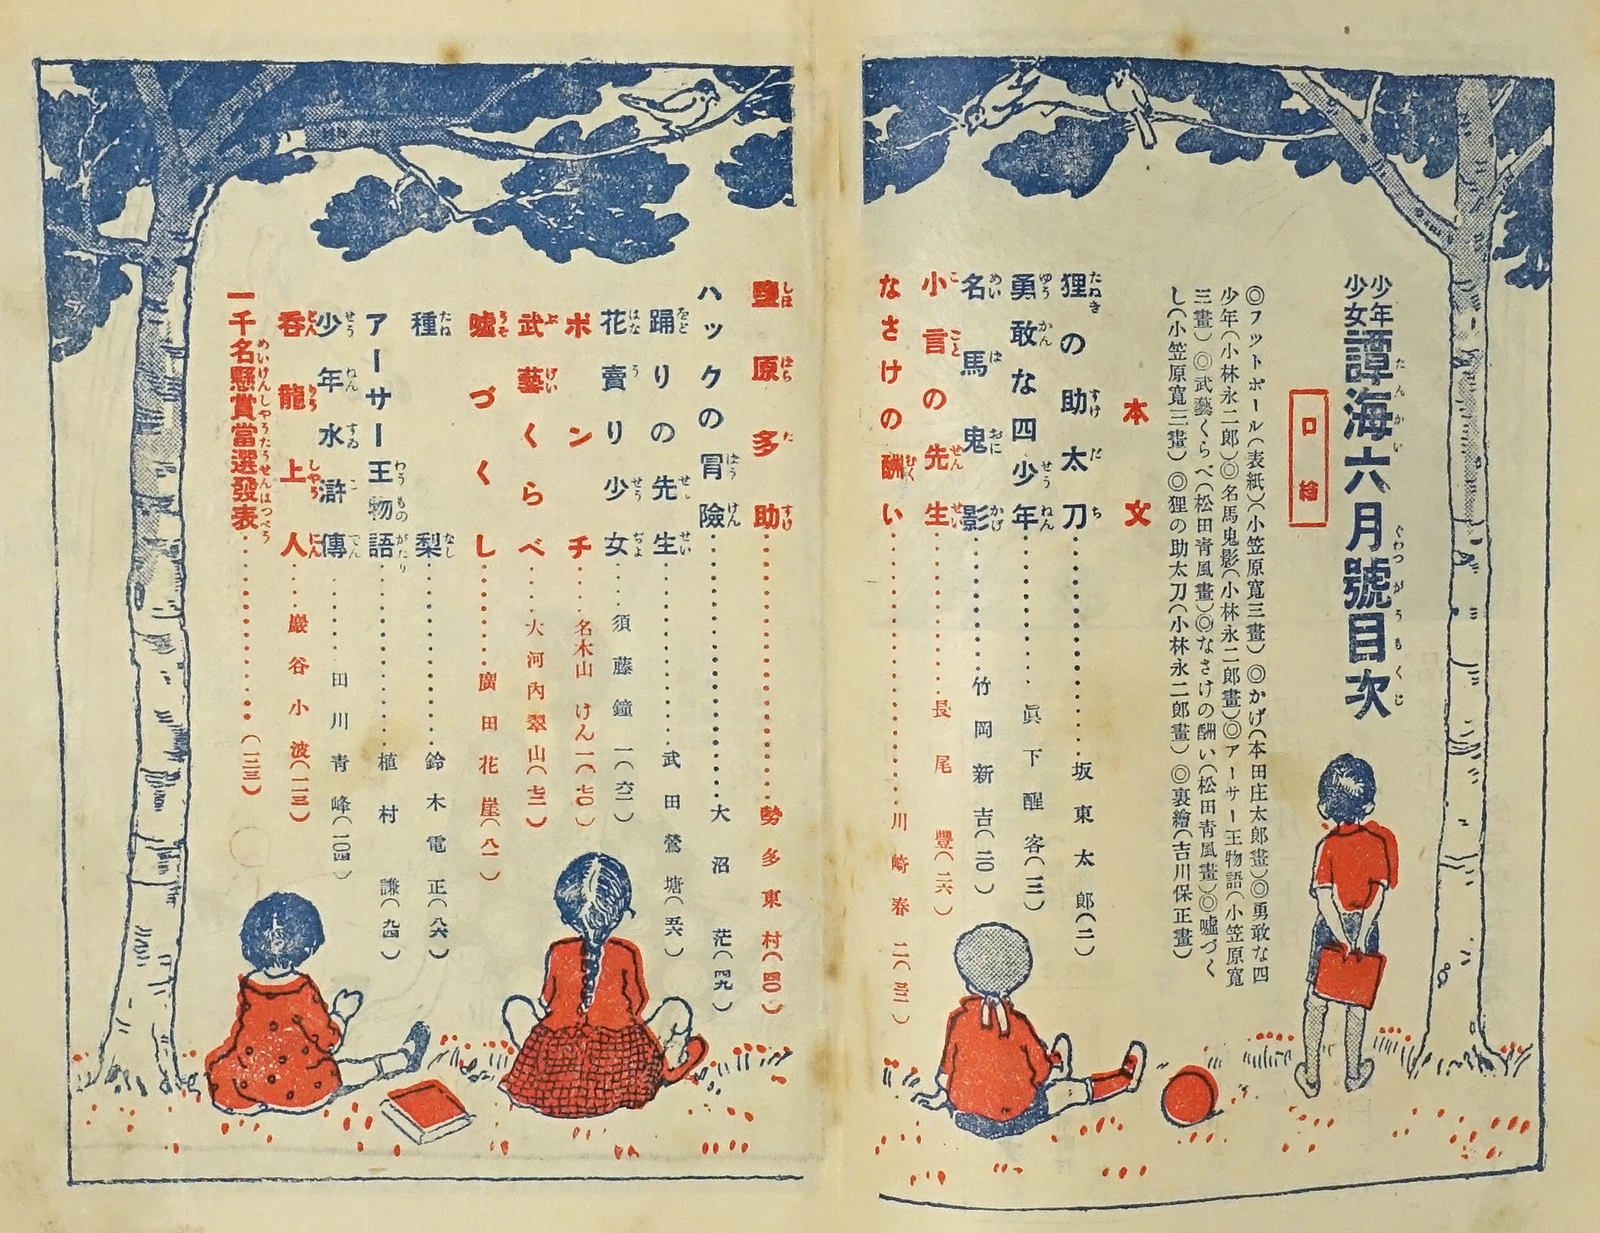 少年少女譚海六月號目次
口繪
◎フットボール(表紙)(小笠原寬三畫)◎かげ(本田庄太郎畫)◎勇敢な四
少年(小林永二郎)◎名馬鬼影(小林永二郎畫)◎アーサー王物語(小笠原寬
三畫)◎武藝くらべ(松田靑風畫)◎なさけの酬い(松田靑風畫)◎噓づく
し(小笠原寬三畫)◎狸の助太刀(小林永二郎畫)◎裏繪(吉川保正畫)
本文
狸の助太刀……坂東太郎(二)
勇敢な四少年……眞下醒客(一二)
名馬鬼影……竹岡新吉(二〇)
小言の先生……長尾豐(二六)
なさけの酬い……川崎春二(三二)
鹽原多助……勢多東村(四〇)
ハックの冐險……大沼茫(四九)
踊りの先生……武田鶯塘(五六)
花賣り少女……須藤鐘一(六二)
ポンチ……名木山けん一(七〇)
武藝くらべ……大河內翠山(七二)
噓づくし……廣田花崖(八一)
種梨……鈴木電正(八六)
アーサー王物語……植村謙(九四)
少年水滸傳……田川靑峰(一〇四)
呑龍上人……巖谷小波(一一三)
一千名懸賞當選發表……(一二三)